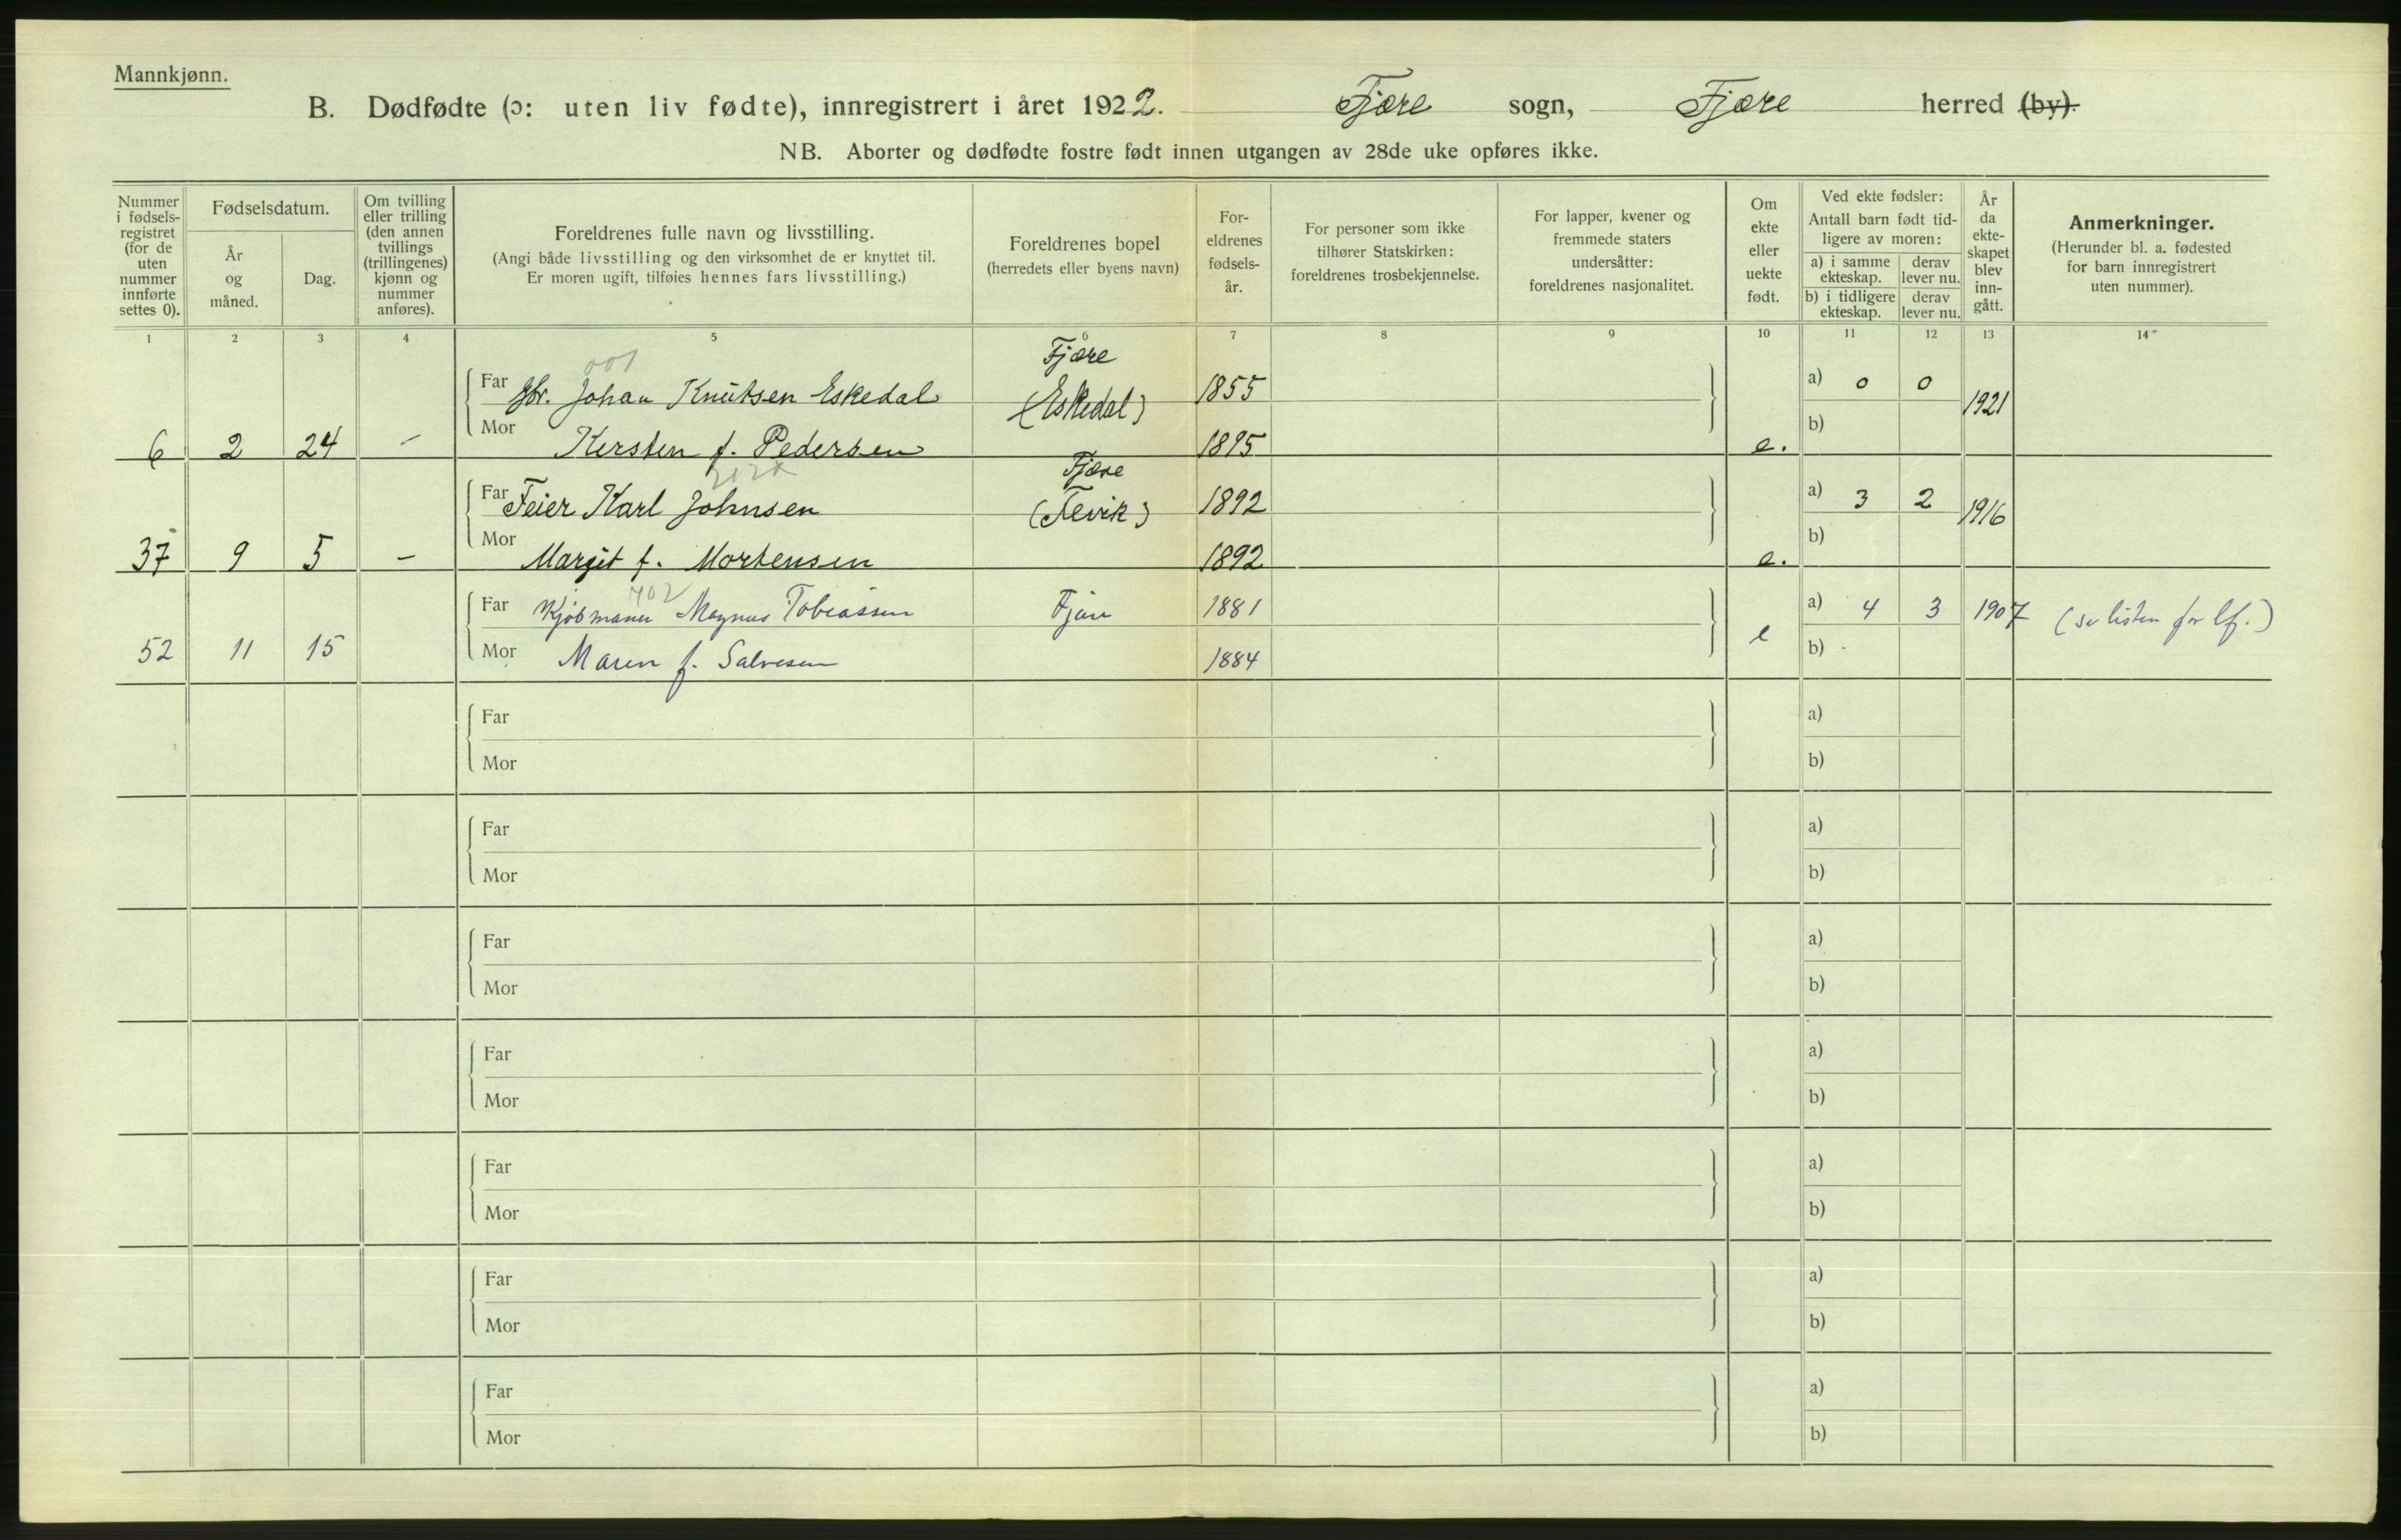 Mannkjønn.
B. Dødfødte (ɔ: uten liv fødte), innregistrert i året 1922. Fjære sogn, Fjære herred (by).
NB. Aborter og dødfødte fostre født innen utgangen av 28de uke opføres ikke.
Nummer i fødsels-registret (for de uten nummer innførte settes 0).
Fødselsdatum.
År og måned.
Dag.
Om tvilling eller trilling (den annen tvillings (trillingenes) kjønn og nummer anføres).
Foreldrenes fulle navn og livsstilling.
(Angi både livsstilling og den virksomhet de er knyttet til.
Er moren ugift, tilføies hennes fars livsstilling.)
Foreldrenes bopel
(herredets eller byens navn)
For-eldrenes fødsels-år.
For personer som ikke tilhører Statskirken: foreldrenes trosbekjennelse.
For lapper, kvener og fremmede staters undersåtter: foreldrenes nasjonalitet.
Om ekte eller uekte født.
Ved ekte fødsler:
Antall barn født tid-ligere av moren:
a) i samme ekteskap.
derav lever nu.
b) i tidligere ekteskap.
derav lever nu.
År da ekte-skapet blev inn-gått.
Anmerkninger.
(Herunder bl. a. fødested for barn innregistrert uten nummer).
1 2 3 4 5 6 7 8 9 10 11 12 13 14
001 Fjære
Far Gbr. Johan Knutsen Eskedal (Eskedal) 1855 a) 0 0 1921
Mor Kersten f. Pedersen 1895 b)
6 2 24 – e.
Fjære
Far Feier Karl Johnsen (Fevik) 1892 a) 3 2 1916
Mor Margit f. Mortensen 1892 b)
37 9 5 – e.
402
Far Kjøbmann Magnus Tobiassen Fjære 1881 a) 4 3 1907 (se listen for lf.)
52 11 15 Mor Maren f. Salvesen 1884 e b)
Far a)
Mor b)
Far a)
Mor b)
Far a)
Mor b)
Far a)
Mor b)
Far a)
Mor b)
Far a)
Mor b)
Far a)
Mor b)